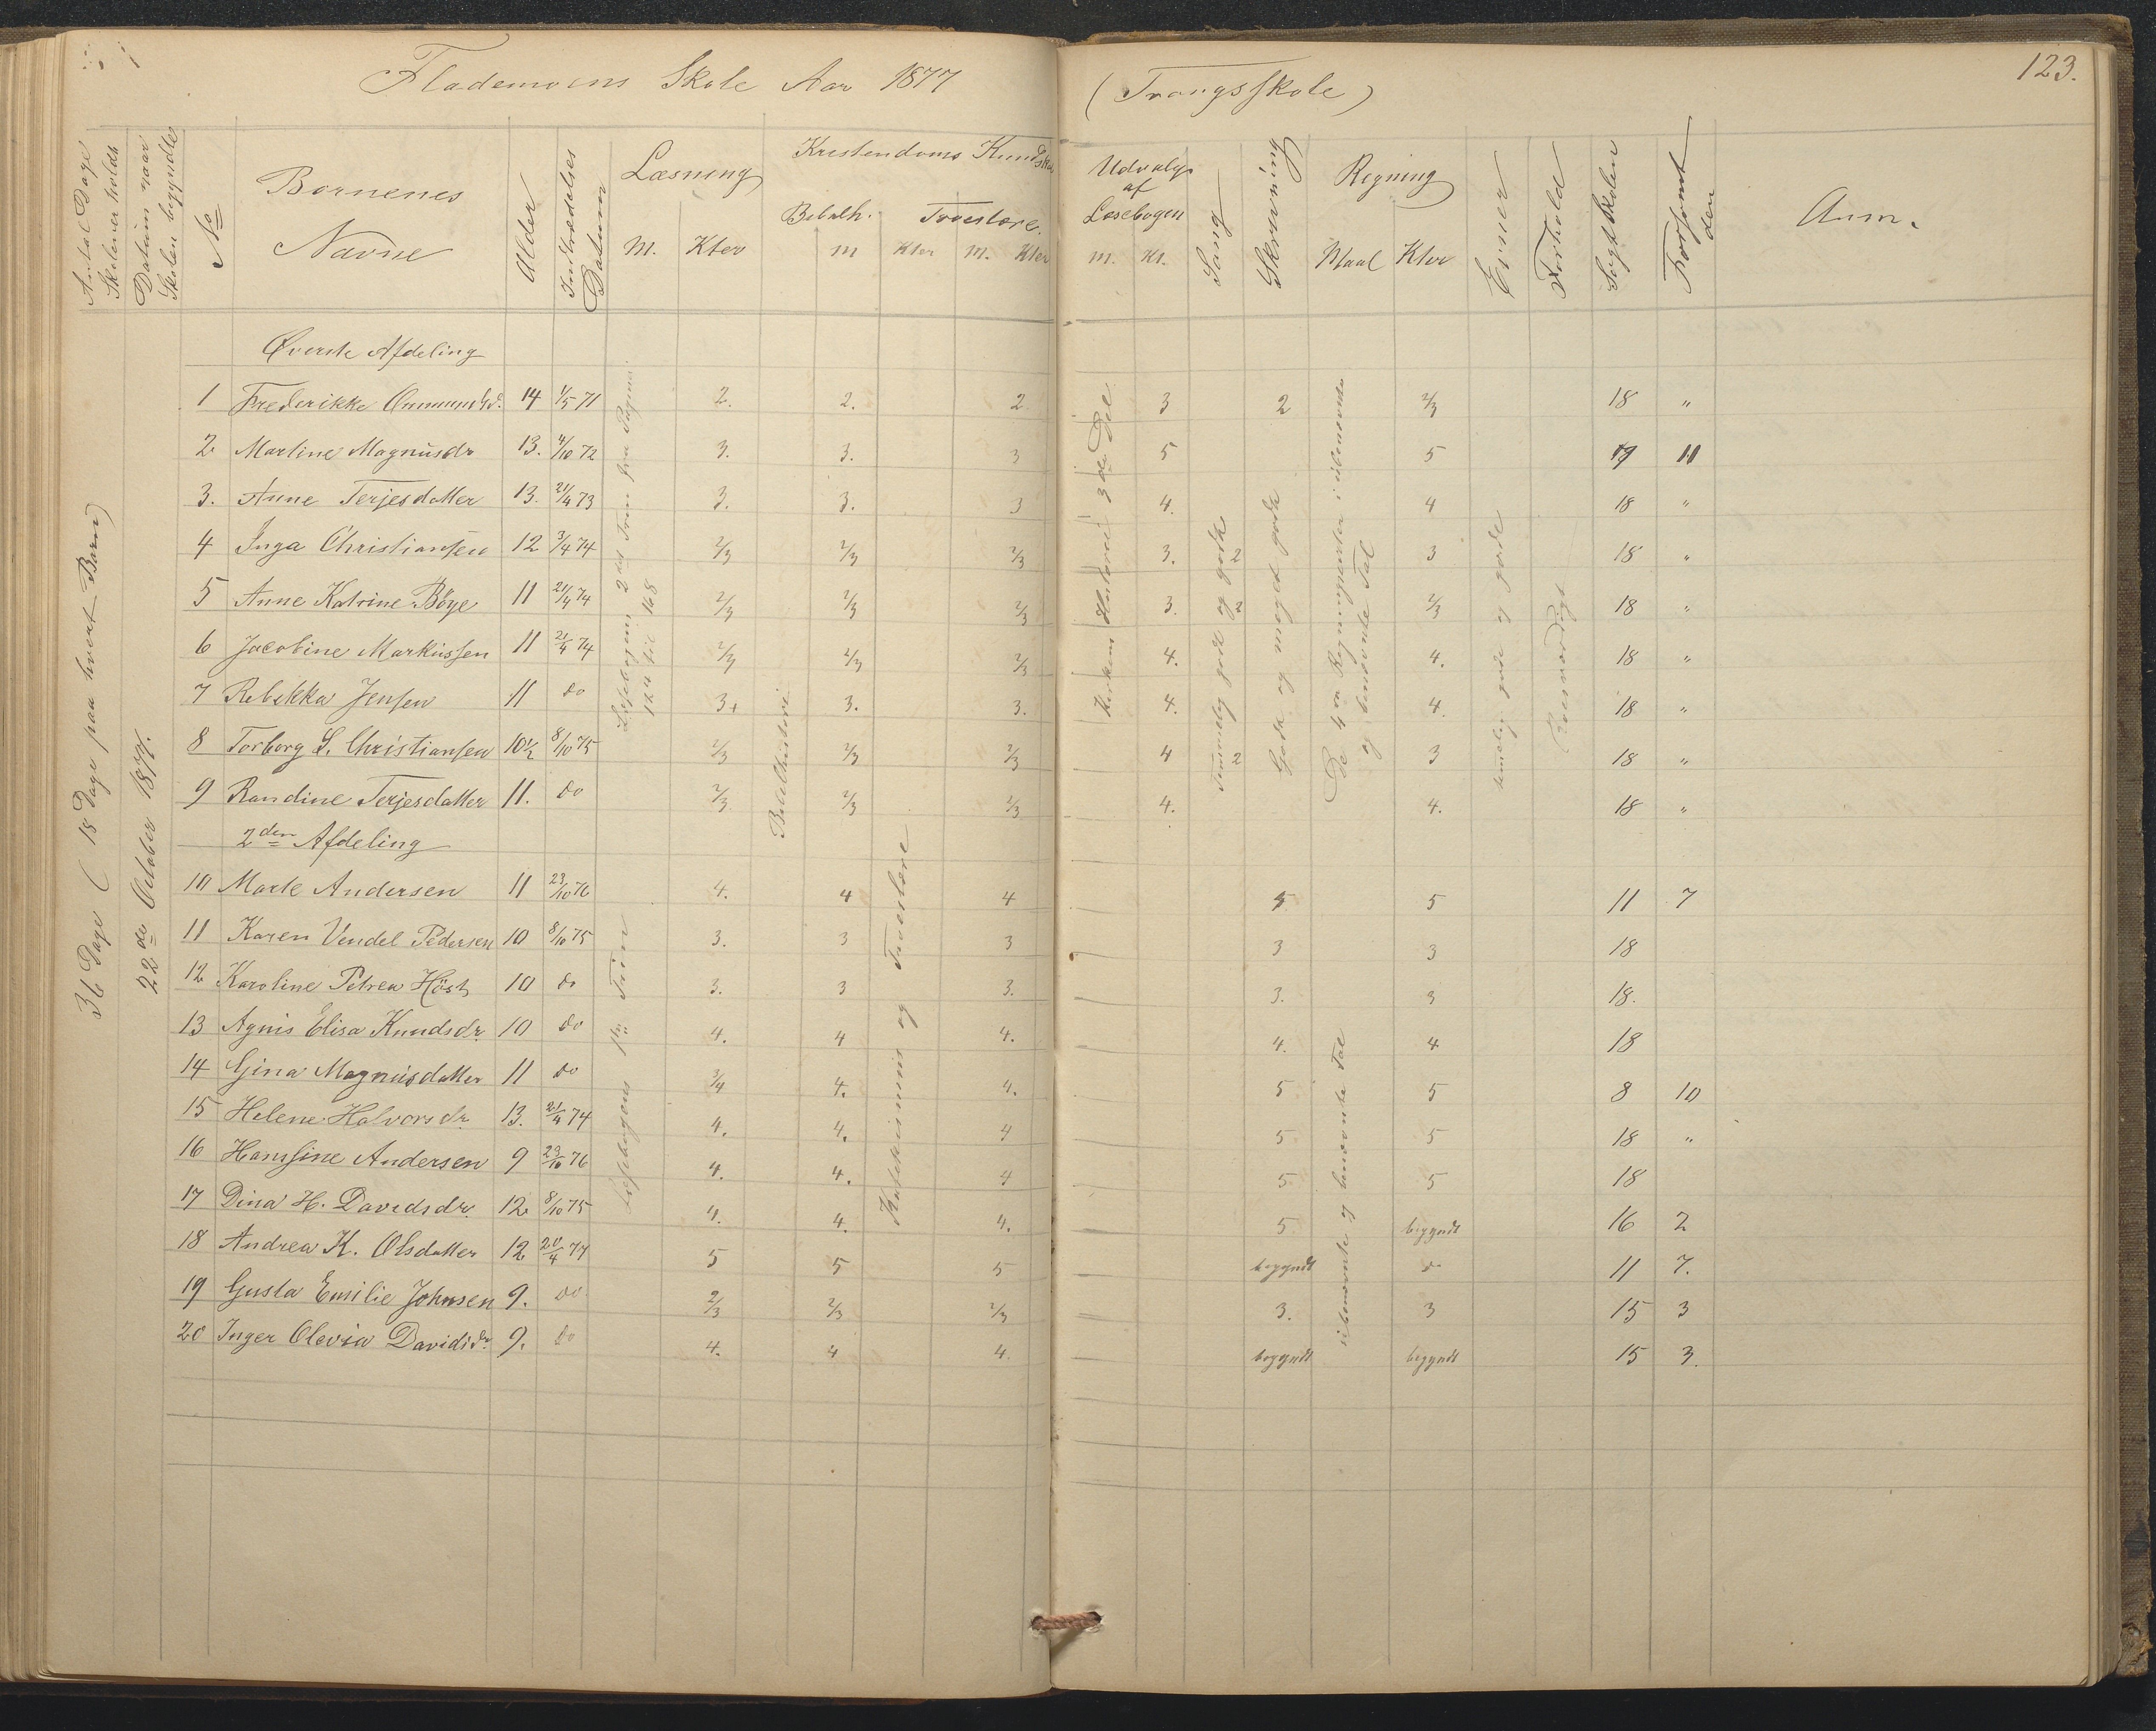 Flademoens Skole Aar 1877 (Trangsskole) 123.
Antal Dage Skolen er holdt
Datum naar Skolen begyndte
No
Børnenes Navne
Alder
Indtrædelses Datum
Læsning M. Kter
Kristendoms Kundskab
Bibelh. M Kter
Troeslære. M. Kter
Udvalg af Læsebogen M. Kt.
Sang
Skrivning
Regning Maal Kter
Evner
Forhold
Søgt Skolen
Forsømt den
Anm.
36 Dage (18 Dage paa hvert Barn)
22de October 1877.
Øverste Afdeling
1 Frederikke Ommundsd. 14 1/5 71 2. 2. 2 3 2 2/3 18 "
2 Martine Magnusdr 13. 4/10 72 3. 3. 3 5 5 11
3. Anne Terjesdatter 13. 21/4 73 3. 3. 3 4. 4 18 "
4 Inga Christiansen 12 3/4 74 2/3 2/3 2/3 3. 2 3 18 "
5 Anne Katrine Böye 11 21/4 74 2/3 2/3 2/3 3. 2 2/3 18 "
6 Jacobine Markussen 11 21/4 74 2/3 2/3 2/3 4. 4. 18 "
7 Rebekka Jensen 11 do 3+ 3. 3. 4. 4. 18 "
8 Torborg S. Christiansen 10½ 8/10 75 2/3 2/3 2/3 4 2 3 18 "
9 Randine Terjesdatter 11. do 2/3 2/3 2/3 4. 4. 18 "
2den Afdeling
10 Marte Andersen 11 23/10 76 4. 4 4 5 5 11 7
11 Karen Vendel Pedersen 10 8/10 75 3. 3 3 3 3 18
12 Karoline Petrea Höst 10 do 3. 3 3. 3. 3 18.
13 Agnis Elisa Knudsdr. 10 do 4. 4 4. 4. 4 18
14 Gina Magnusdatter 11 do 3/4 4. 4. 5 5 8 10
15 Helene Halvorsdr. 13. 21/4 74 4. 4. 4 5 5 18 "
16 Hansine Andersen 9 23/10 76 4. 4. 4 5 5 18
17 Dina H. Davidsdr. 12 8/10 75 4. 4. 4. 5 begyndt 16 2
18 Andrea K. Olsdatter 12 20/4 77 5 5 5 begyndt do 11 7.
19 Gusta Emilie Johnsen 9. do 2/3 2/3 2/3 3. 3 15 3
20 Inger Olevia Davidsdr. 9. do 4. 4 4. begyndt begyndt 15 3.
Læsebogens 2det Trin fra Pagina 124 til 168
Læsebogens 1ste Trin
Bibelhistorie
Katekismus og Troeslære
Kirkens Historie 3die Del
Temmelig godt og godt
Godt og meget godt
De 4re Regningsarter i ubenævnte og benævnte Tal
ubenævnte og benævnte Tal
temelig gode og gode
Roesværdigt